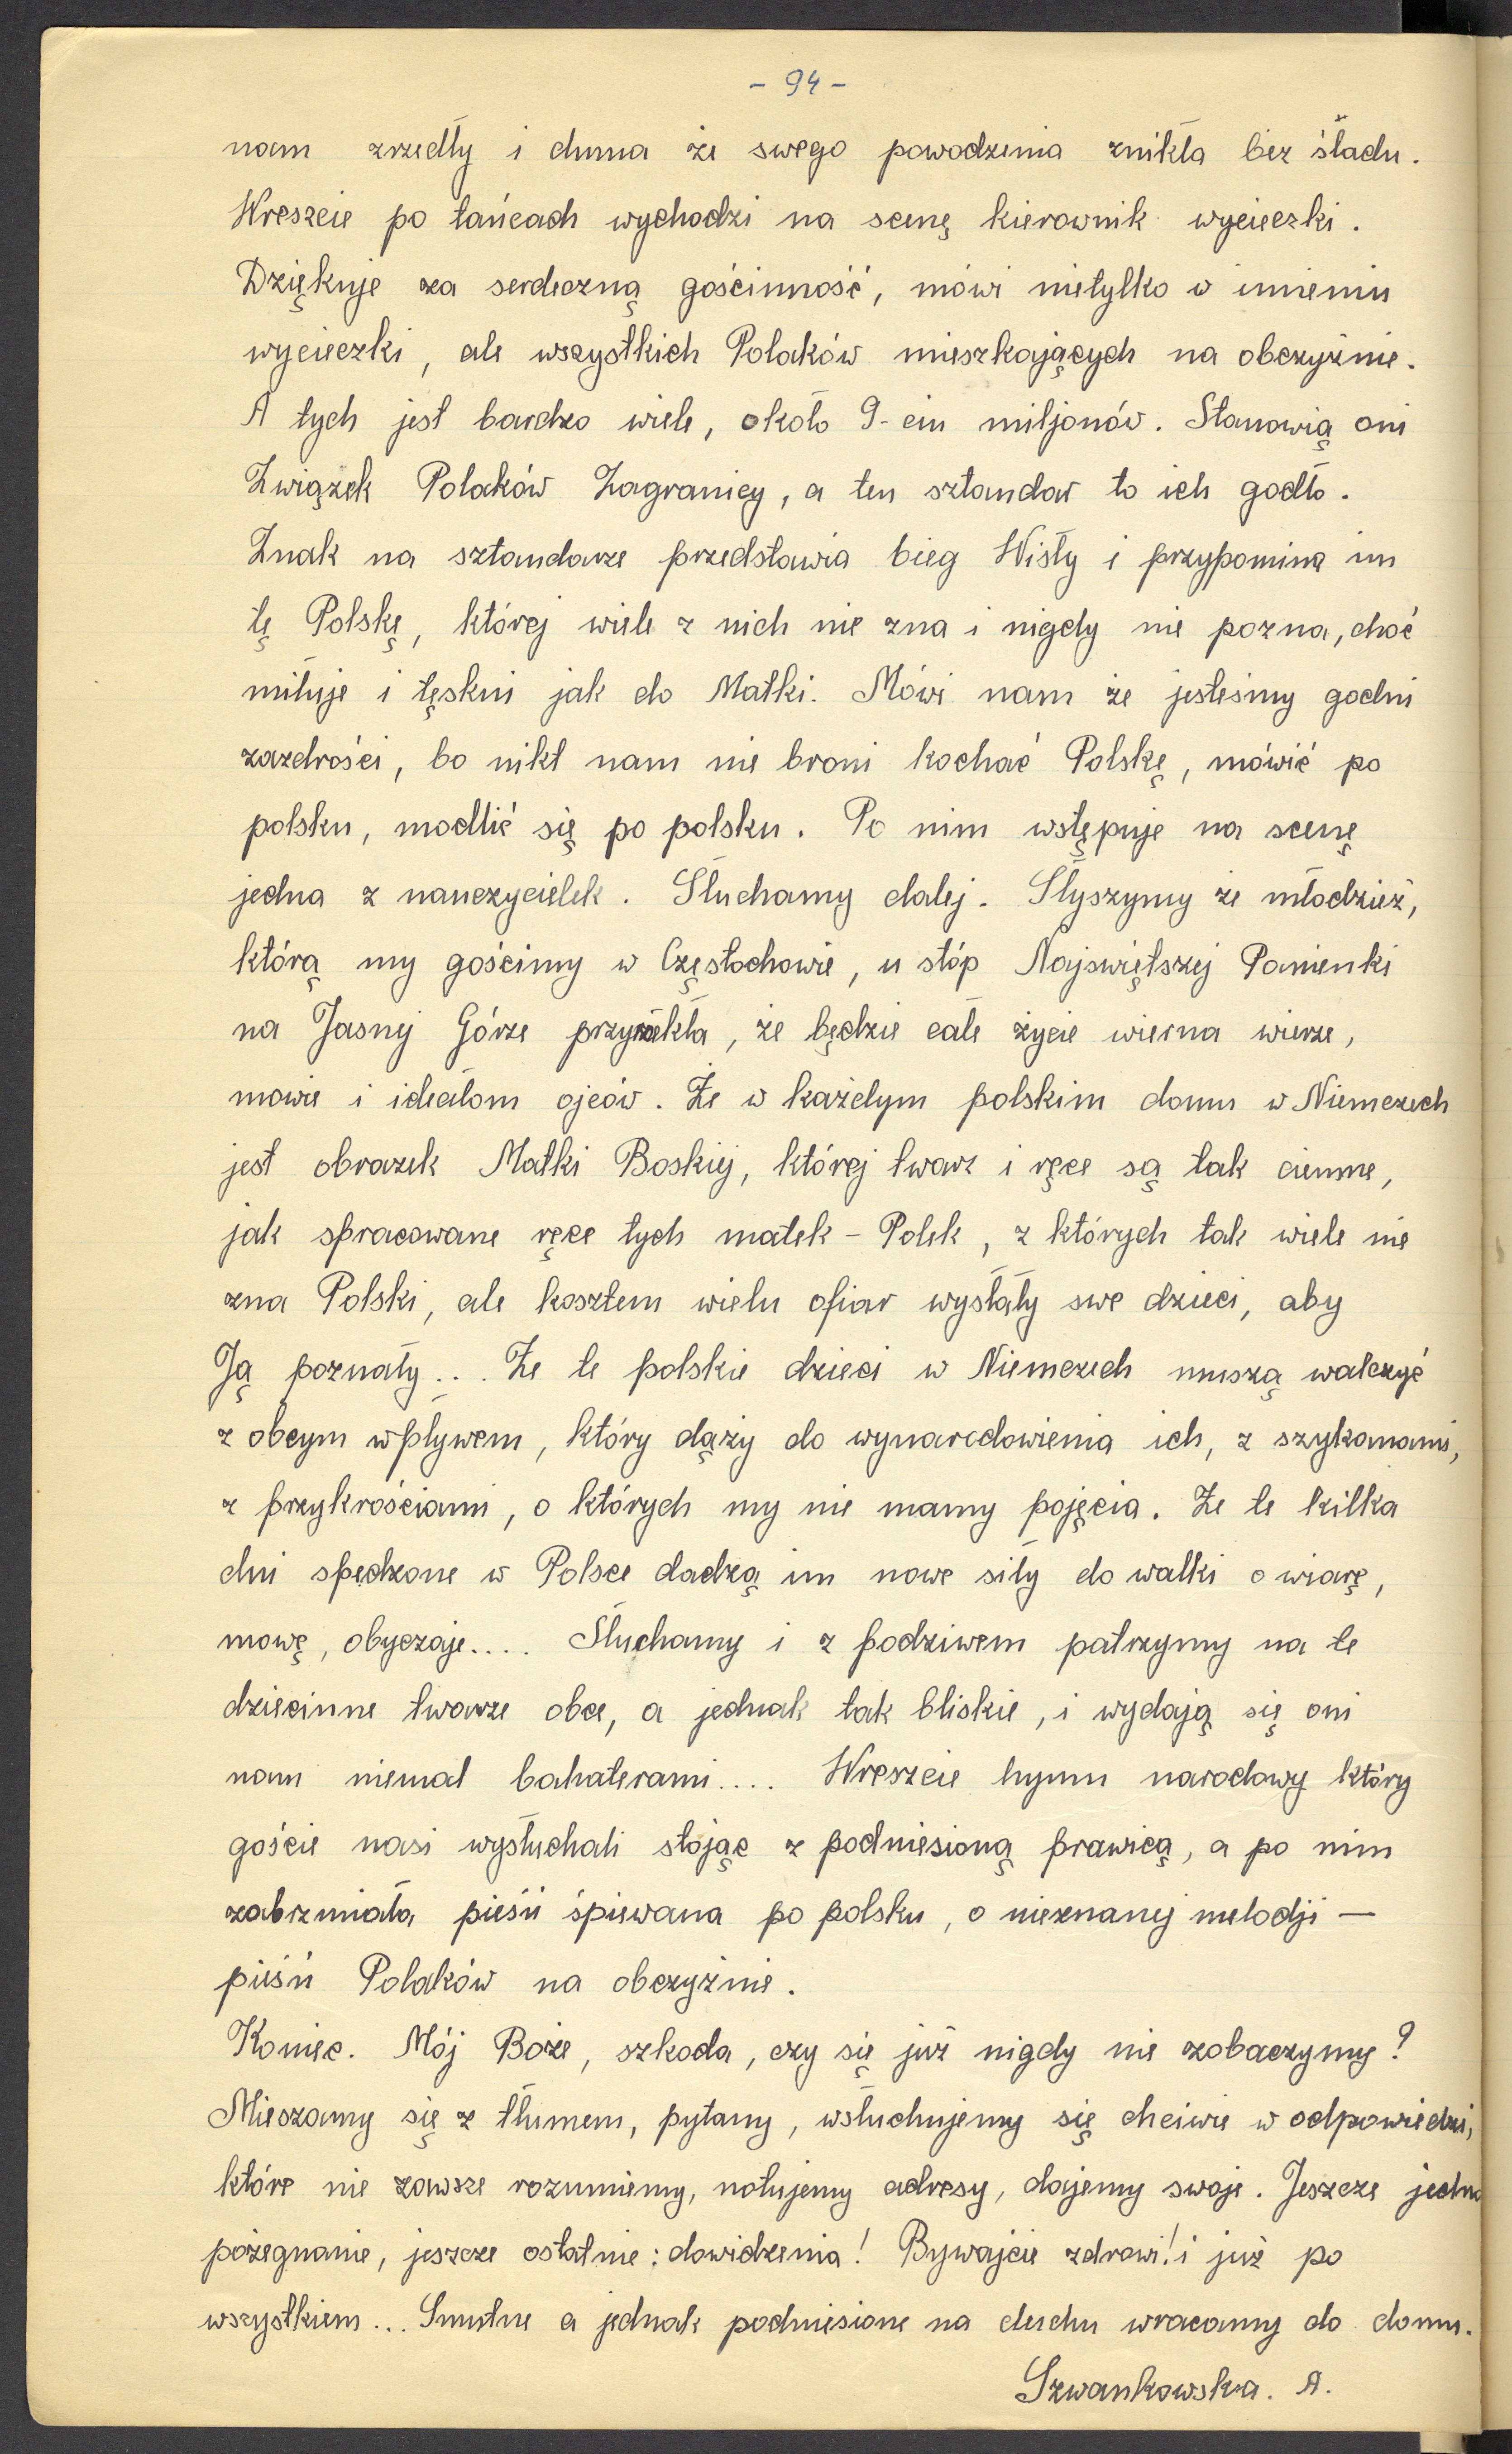 - 94 -
nam zrzedły i duma ze swego powodzenia znikła bez śladu.
Wreszcie po tańcach wychodzi na scenę kierownik wycieczki.
Dziękuje za serdeczną gościnność, mówi nietylko w imieniu
wycieczki, ale wszystkich Polaków mieszkających na obczyźnie.
A tych jest bardzo wiele, około 9-ciu miljonów. Stanowią oni
Związek Polaków Zagranicy, a ten sztandar to ich godło.
Znak na sztandarze przedstawia bieg Wisły i przypomina im
tę Polskę, której wiele z nich nie zna i nigdy nie pozna, choć
miłuje i tęskni jak do Matki. Mówi nam że jesteśmy godni
zazdrości, bo nikt nam nie broni kochać Polskę, mówić po
polsku, modlić się po polsku. Po nim wstępuje na scenę
jedna z nauczycielek. Słuchamy dalej. Słyszymy że młodzież,
którą my gościmy w Częstochowie, u stóp Najświętszej Panienki
na Jasnej Górze przyrzekła, że będzie całe życie wierna wierze,
mowie i ideałom ojców. Że w każdym polskim domu w Niemczech
jest obrazek Matki Boskiej, której twarz i ręce są tak ciemne,
jak spracowane ręce tych matek - Polek, z których tak wiele nie
zna Polski, ale kosztem wielu ofiar wysłały swe dzieci, aby
Ją poznały... Że te polskie dzieci w Niemczech muszą walczyć
z obcym wpływem, który dąży do wynarodowienia ich, z szykanami,
z przykrościami, o których my nie mamy pojęcia. Że te kilka
dni spędzone w Polsce dadzą im nowe siły do walki o wiarę,
mowę, obyczaje.... Słuchamy i z podziwem patrzymy na te
dziecinne twarze obce, a jednak tak bliskie, i wydają się oni
nam niemal bohaterami.... Wreszcie hymn narodowy który
goście nasi wysłuchali stojąc z podniesioną prawicą, a po nim
zabrzmiała pieśń śpiewana po polsku, o nieznanej melodji —
pieśń Polaków na obczyźnie.
Koniec. Mój Boże, szkoda, czy się już nigdy nie zobaczymy?
Mieszamy się z tłumem, pytamy, wsłuchujemy się chciwie w odpowiedzi,
które nie zawsze rozumiemy, notujemy adresy, dajemy swoje. Jeszcze jedno
pożegnanie, jeszcze ostatnie: dowidzenia! Bywajcie zdrowi! i już po
wszystkiem... Smutne a jednak podniesione na duchu wracamy do domu.
Szwankowska. A.